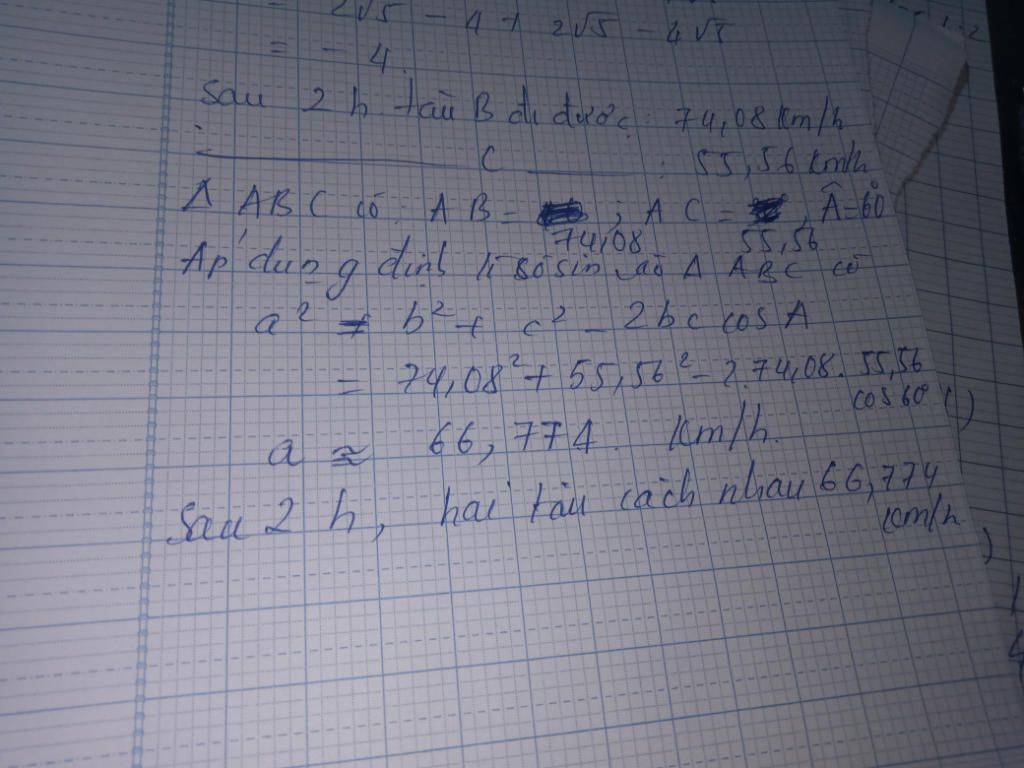 = 2√5 - 4 + 2√5 - 4√5
= - 4.
Sau 2 h tàu B đi được: 74,08 Km/h
C : 55,56 km/h
Δ ABC có: AB = 74,08 ; AC = 55,56 , Â = 60°
Áp dụng định lí côsin vào Δ ABC có
a² = b² + c² - 2bc cosA
= 74,08² + 55,56² - 2.74,08.55,56 cos 60°
a ≈ 66,774 Km/h.
Sau 2 h, hai tàu cách nhau 66,774 km/h